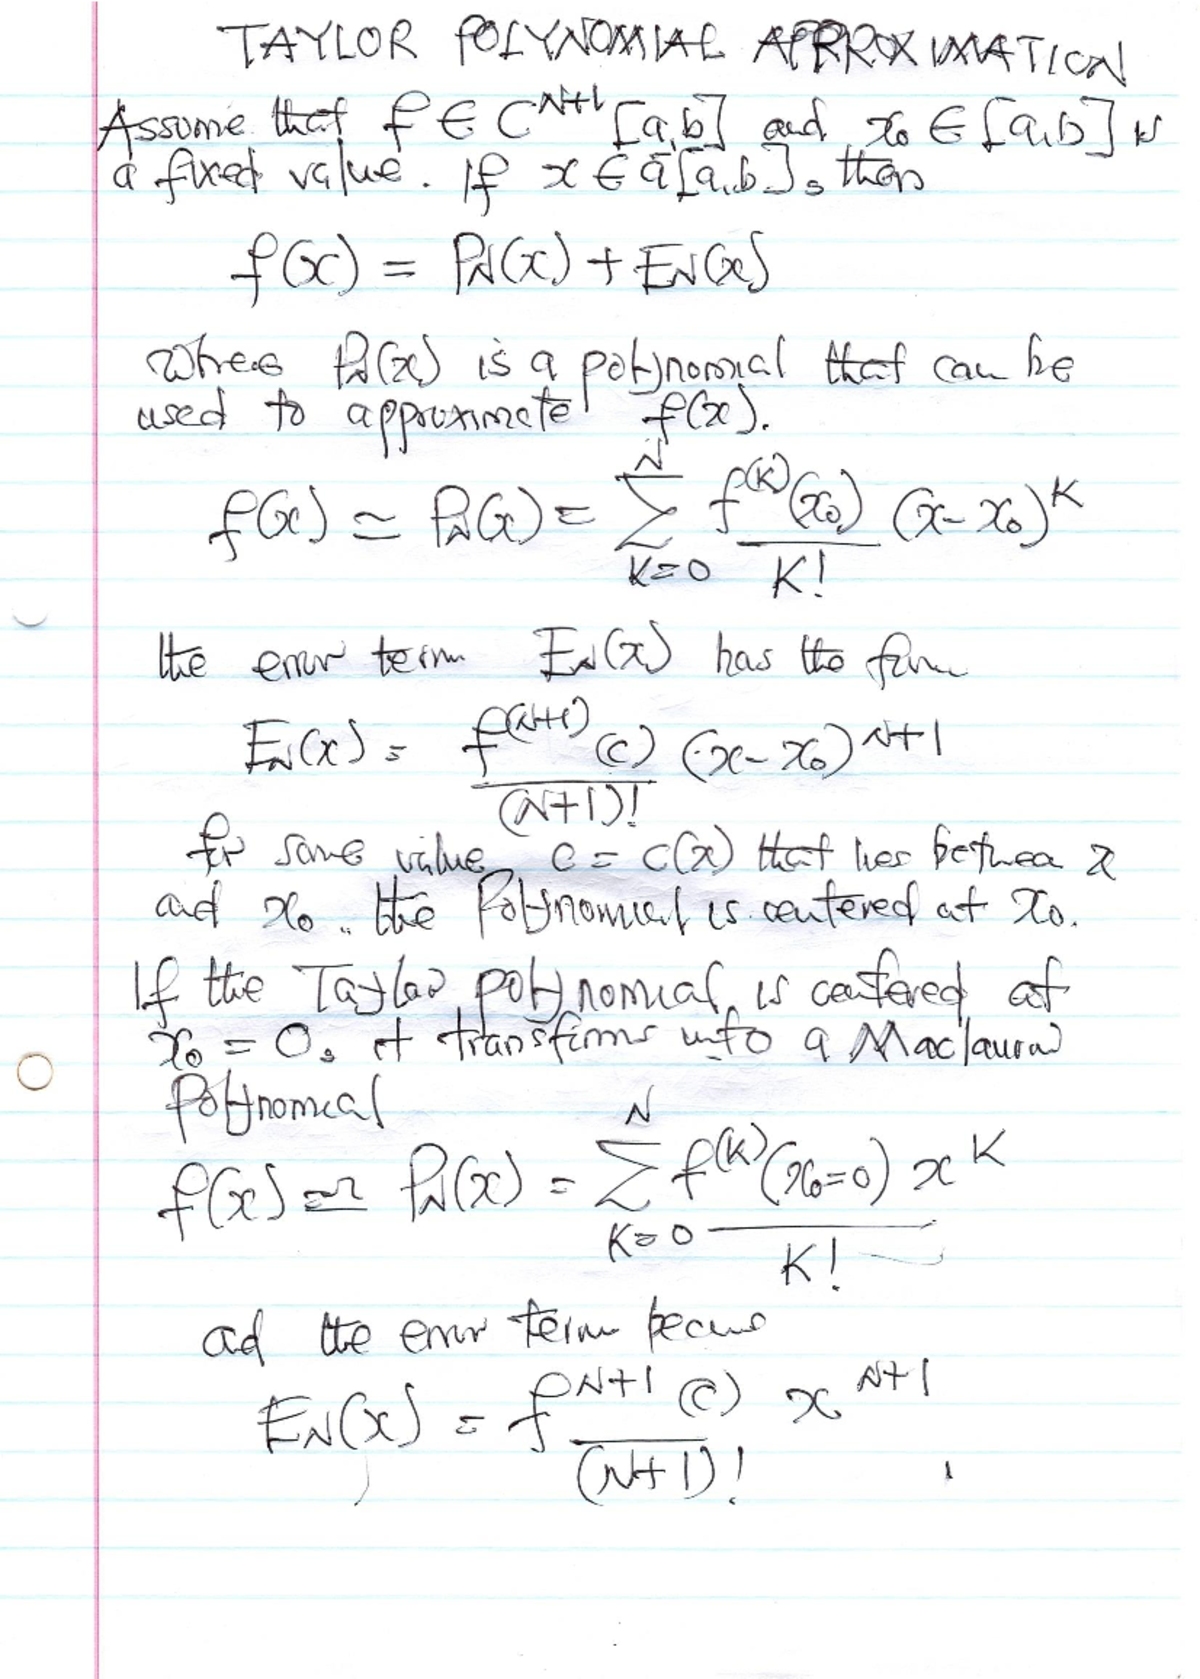 TAYLOR POLYNOMIAL APPROXIMATION
Assume that f ∈ C^{N+1} [a,b] and x₀ ∈ [a,b] is
a fixed value. If x ∈ a [a,b], then
f(x) = P_N(x) + E_N(x)
where P_N(x) is a polynomial that can be
used to approximate f(x).
f(x) ≃ P_N(x) = \sum_{K=0}^{N} \frac{f^{(K)}(x₀)}{K!} (x-x₀)^K
the error term E_N(x) has the form
E_N(x) = \frac{f^{(N+1)}(c)}{(N+1)!} (x-x₀)^{N+1}
for some value c = c(x) that lies between x
and x₀. the Polynomial is centered at x₀.
If the Taylor polynomial is centered at
x₀ = 0, it transforms into a Maclaurin
Polynomial
f(x) ≃ P_N(x) = \sum_{K=0}^{N} \frac{f^{(K)}(x₀=0) x^K}{K!}
ad the error term become
E_N(x) = \frac{f^{N+1}(c)}{(N+1)!} x^{N+1}